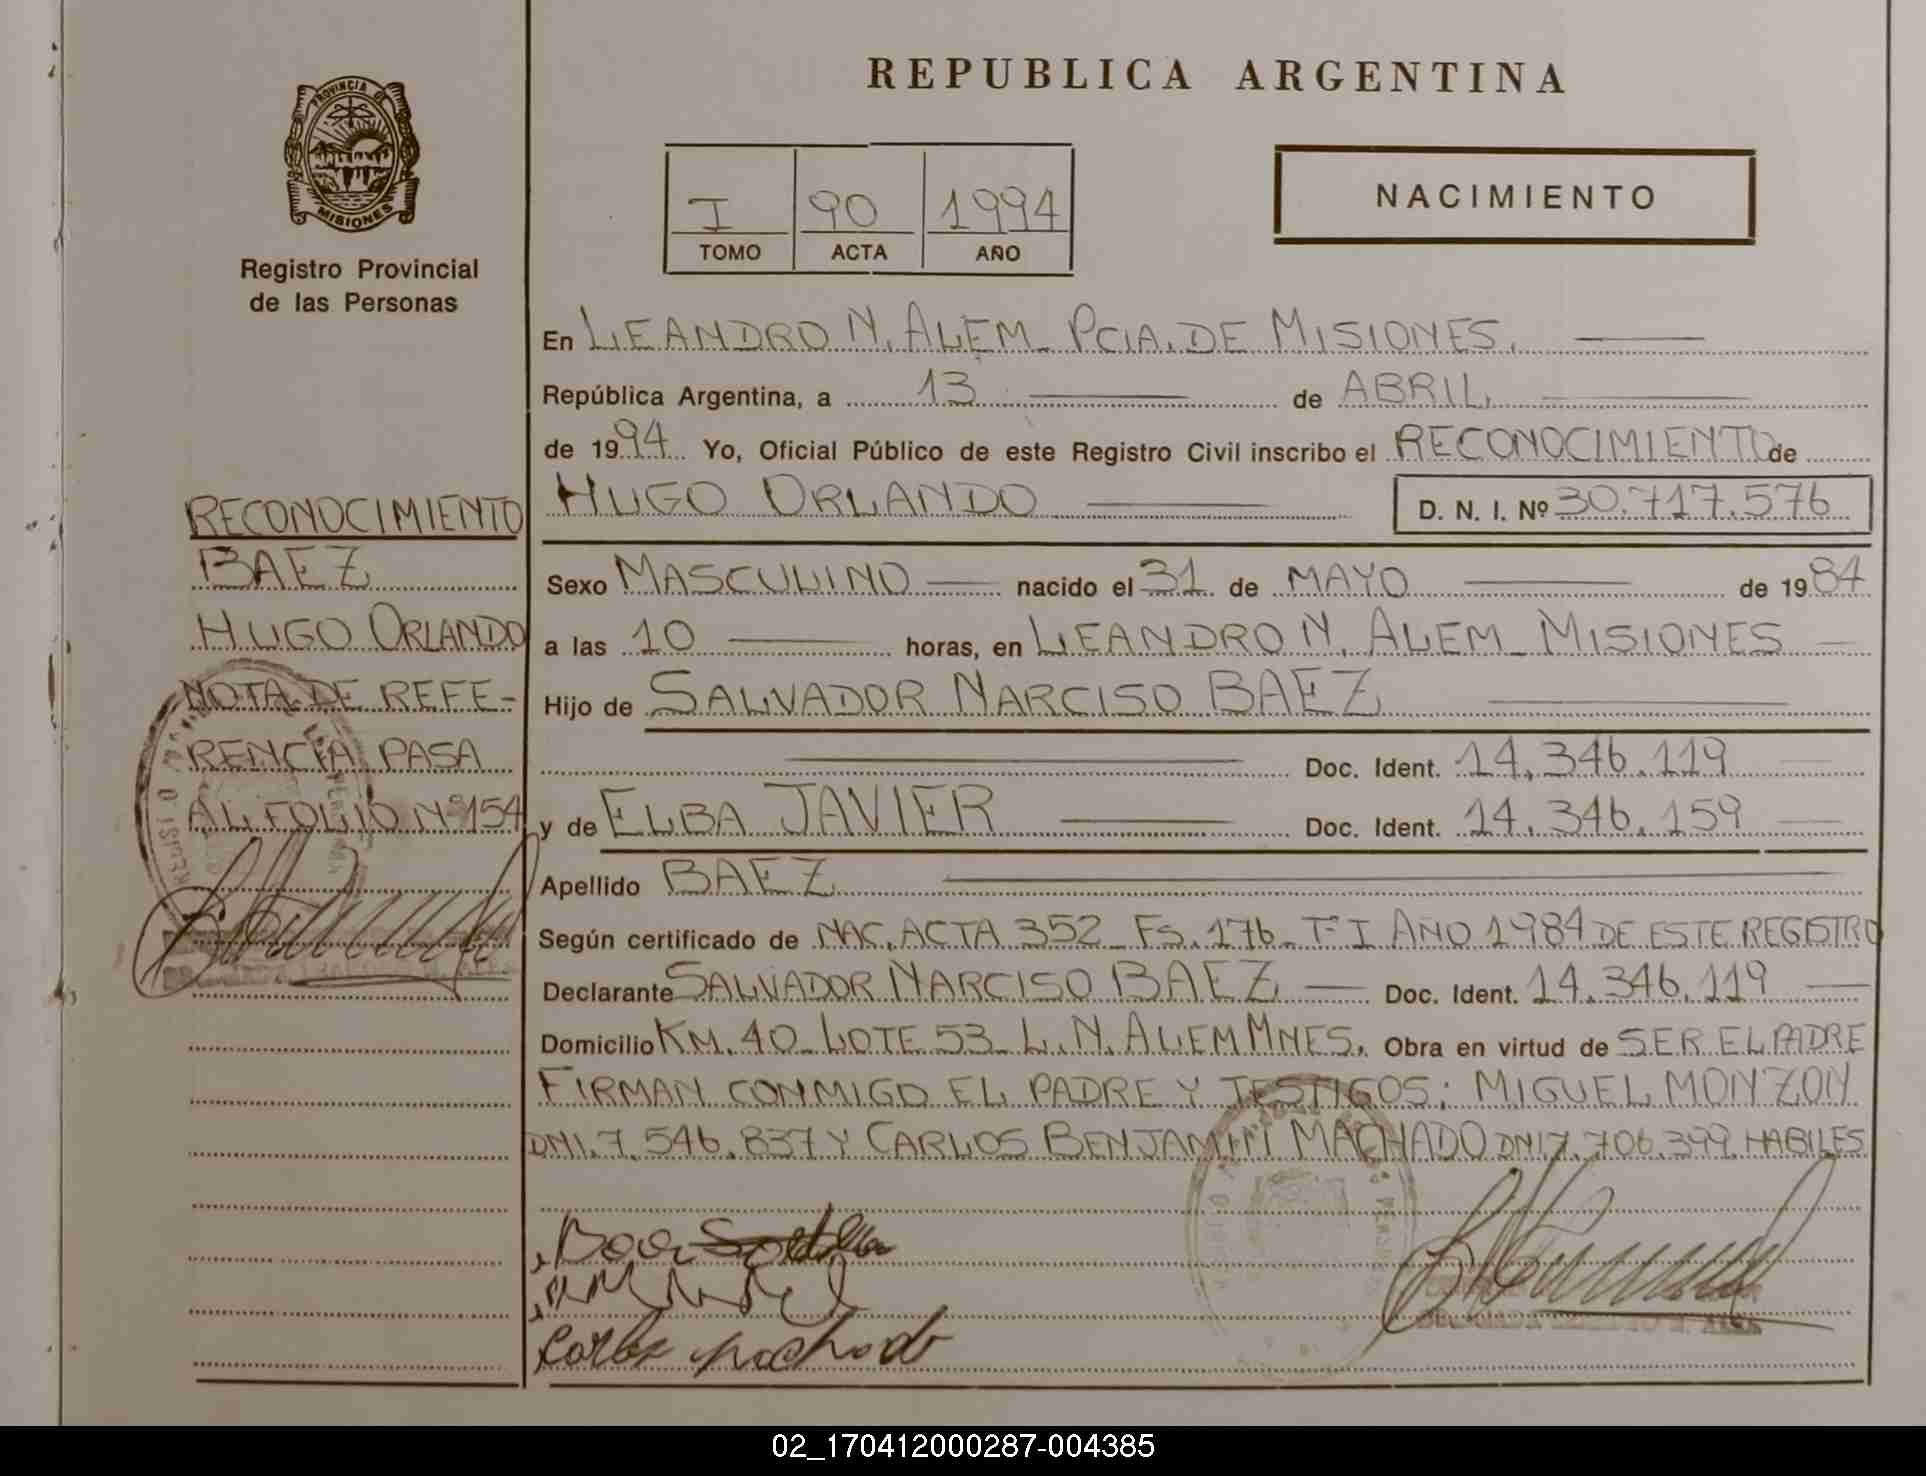 REPUBLICA ARGENTINA
PROVINCIA DE
MISIONES
Registro Provincial
de las Personas
I 90 1994
TOMO ACTA AÑO
NACIMIENTO
En LEANDRO N. ALEM_ PCIA. DE MISIONES.
República Argentina, a 13 de ABRIL
de 1994 Yo, Oficial Público de este Registro Civil inscribo el RECONOCIMIENTO de
HUGO ORLANDO D. N. I. Nº 30.717.576
Sexo MASCULINO nacido el 31 de MAYO de 1984
a las 10 horas, en LEANDRO N. ALEM_ MISIONES
Hijo de SALVADOR NARCISO BAEZ
Doc. Ident. 14.346.119
y de ELBA JAVIER Doc. Ident. 14.346.159
Apellido BAEZ
Según certificado de NAC. ACTA 352_ Fs. 176_ Tº I AÑO 1984 DE ESTE REGISTRO
Declarante SALVADOR NARCISO BAEZ Doc. Ident. 14.346.119
Domicilio KM. 40_ LOTE 53_ L. N. ALEM MNES. Obra en virtud de SER EL PADRE
FIRMAN CONMIGO EL PADRE Y TESTIGOS: MIGUEL MONZON
DNI. 7.546.837 Y CARLOS BENJAMIN MACHADO DNI 7.706.399. HABILES
Carlos machado
RECONOCIMIENTO
BAEZ
HUGO ORLANDO
NOTA DE REFE-
RENCIA PASA
AL FOLIO Nº 154
02_170412000287-004385